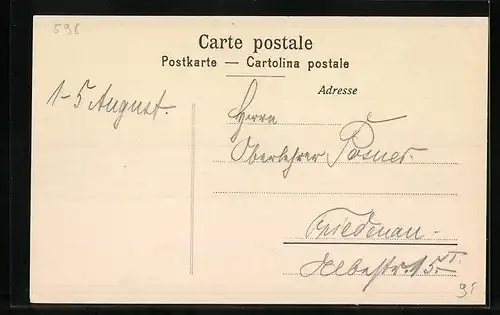 598
Carte postale
Postkarte — Cartolina postale
Adresse
1-5 August.
Herrn
Oberlehrer Posner.
Friedenau -
15. I.